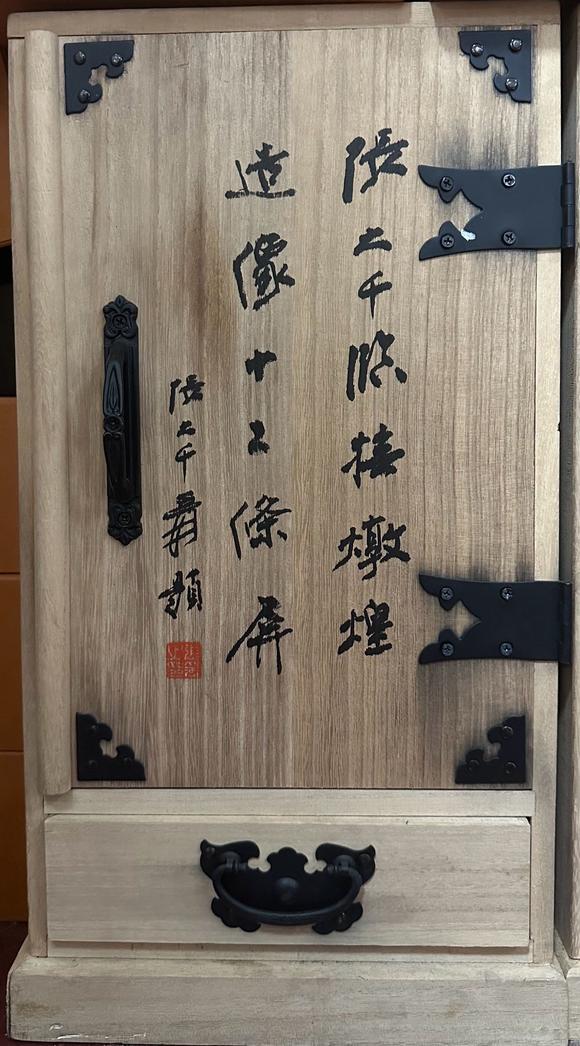 張大千臨撫燉煌
造像十二條屏
張大千爰題